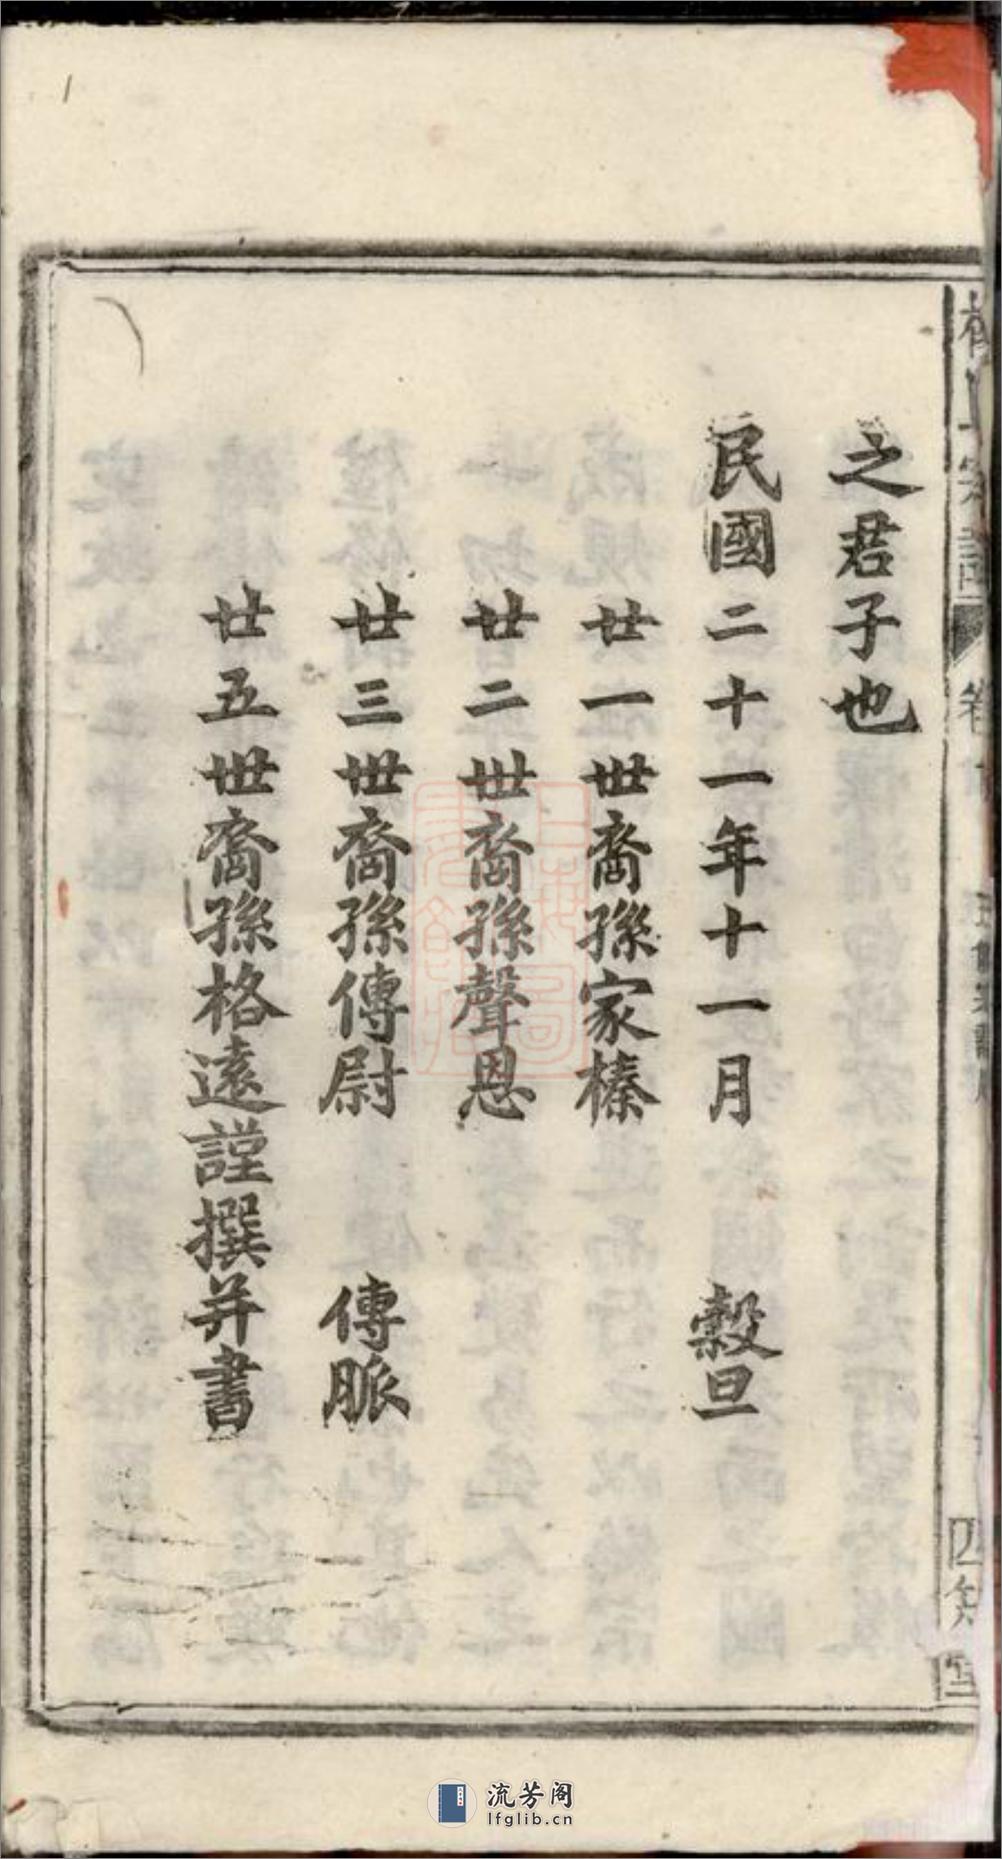 之君子也
民國二十一年十一月 穀旦
廿一世裔孫家榛
廿二世裔孫聲恩
廿三世裔孫傳尉 傳脈
廿五世裔孫格遠謹撰并書
四知堂
流芳阁
lfglib.cn